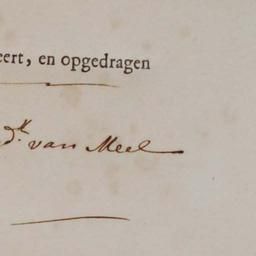 eert, en opgedragen
d.k van Meel